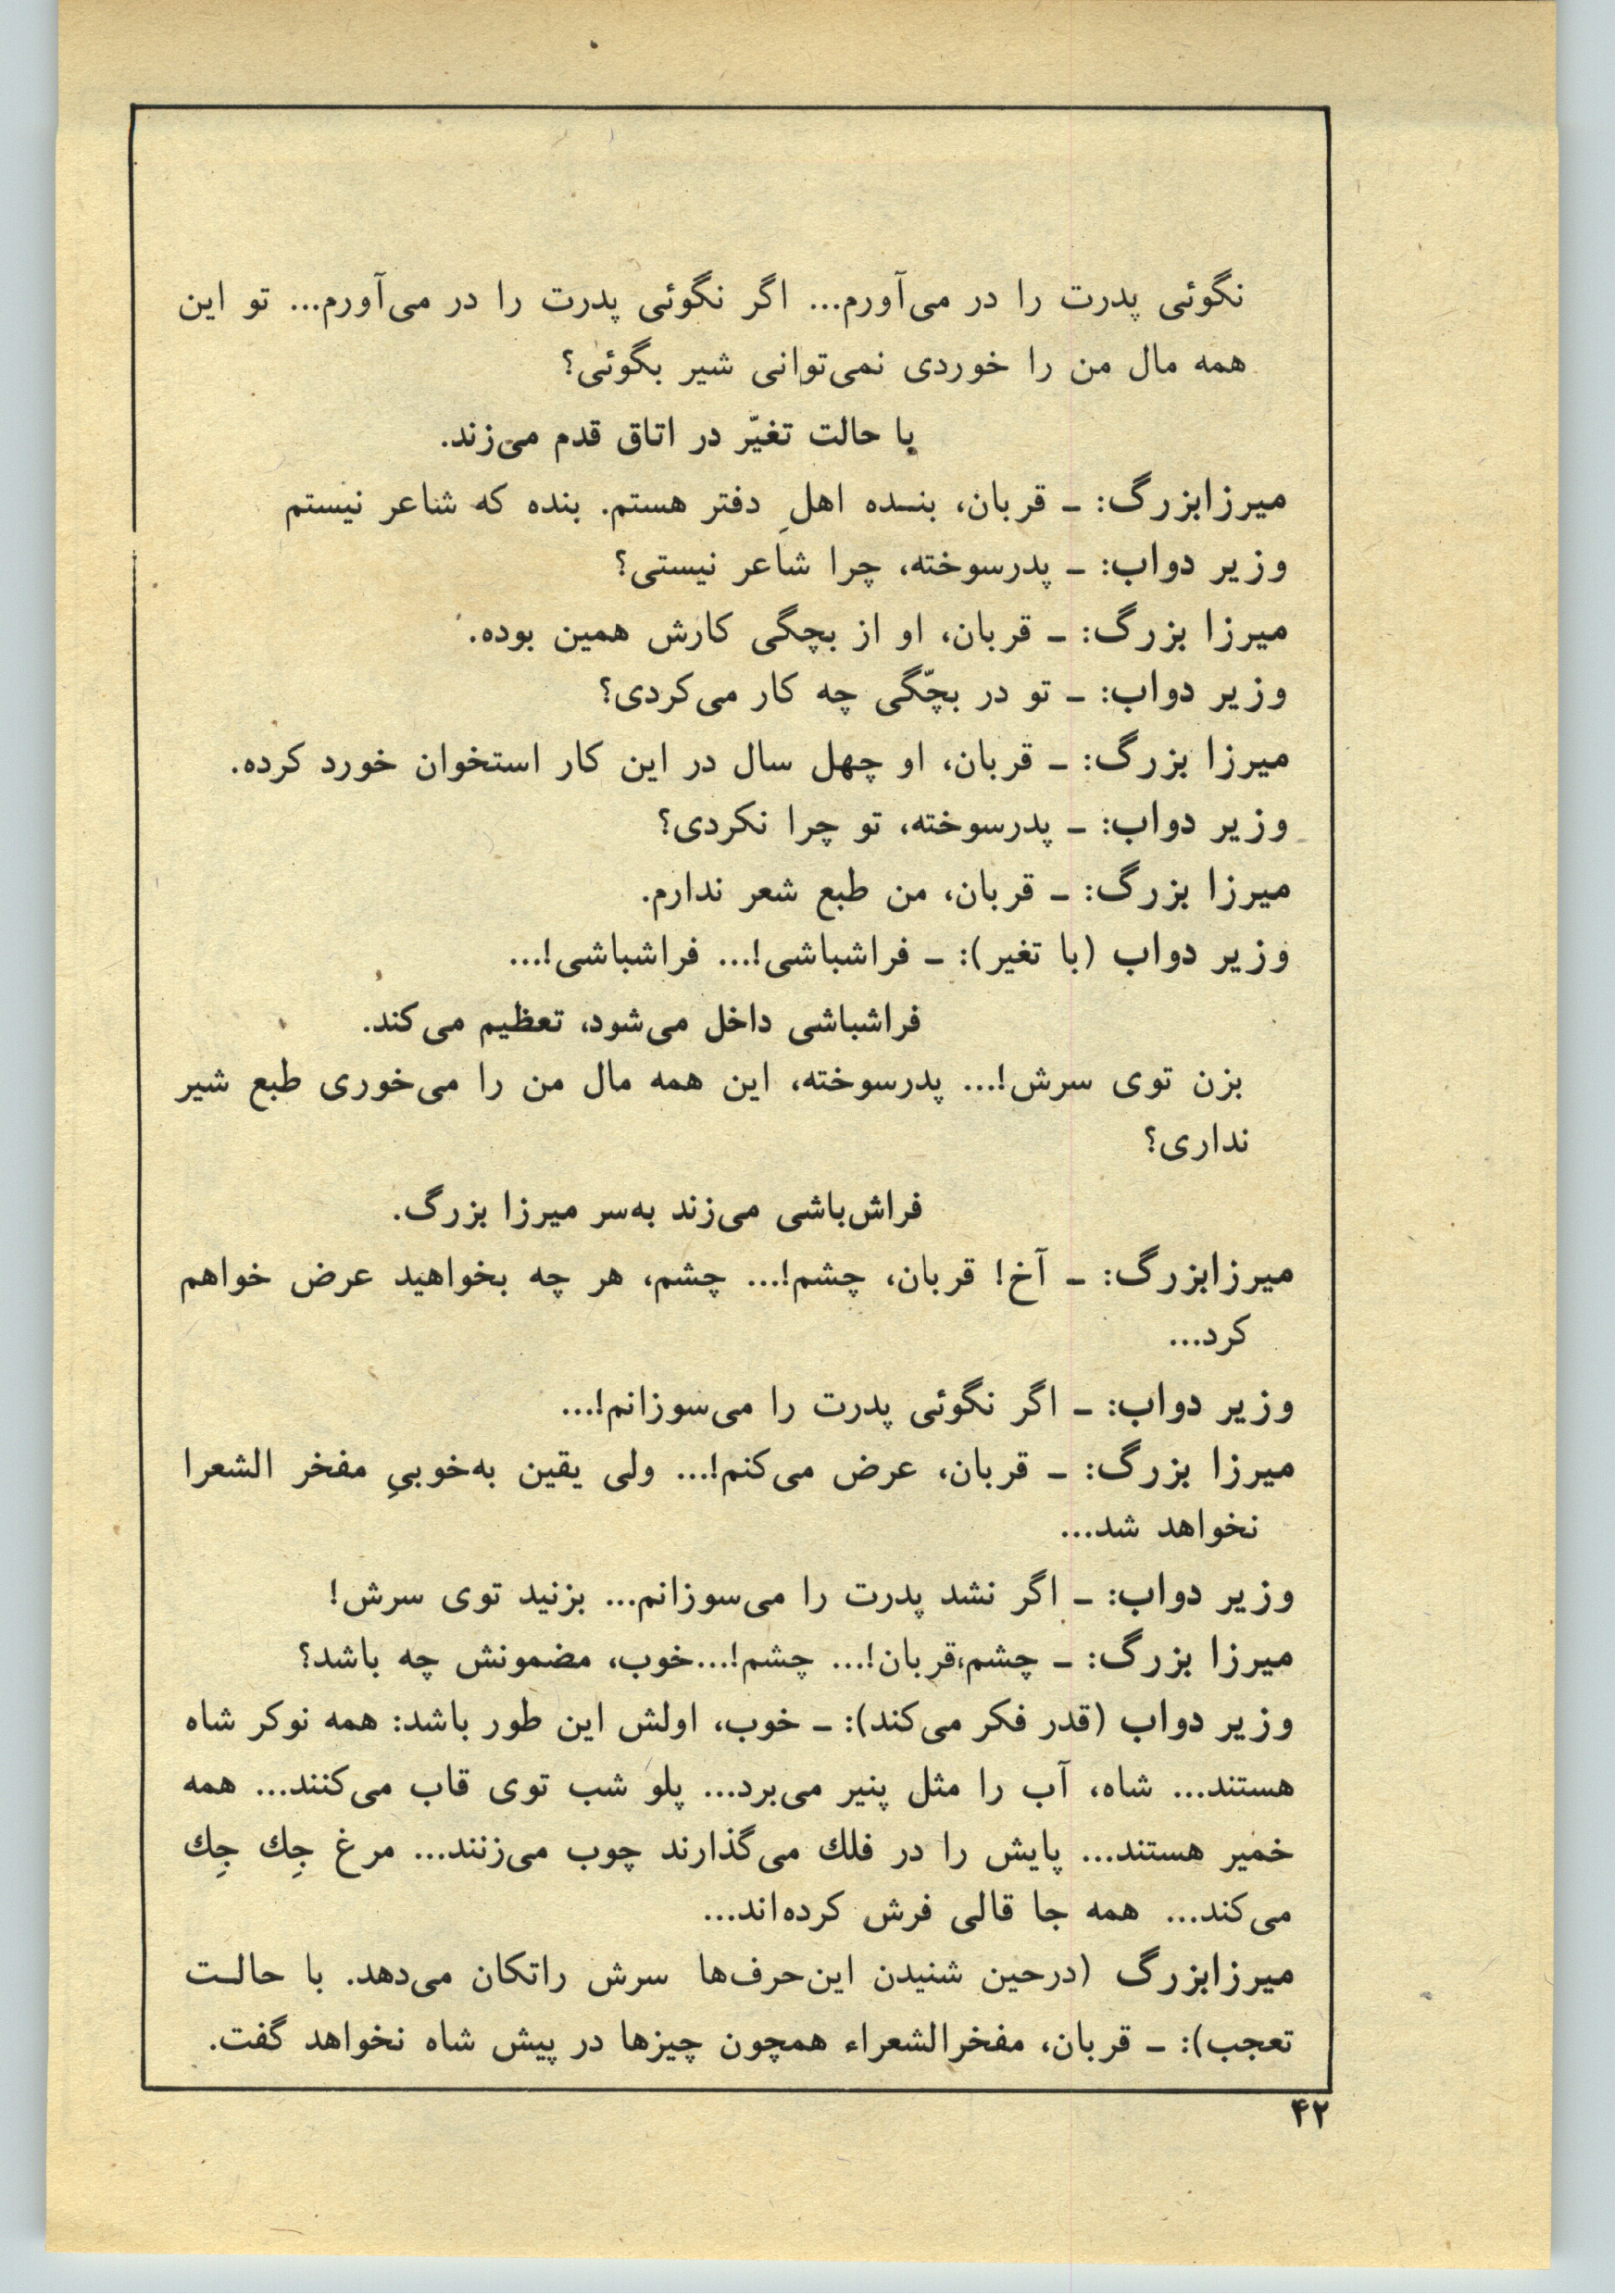 نگوئی پدرت را در می‌آورم... اگر نگوئی پدرت را در می‌آورم... تو این
همه مال من را خوردی نمی‌توانی شیر بگوئی؟
با حالت تغیّر در اتاق قدم می‌زند.
میرزابزرگ: ـ قربان، بنـده اهلِ دفتر هستم. بنده که شاعر نیستم
وزیر دواب: ـ پدرسوخته، چرا شاعر نیستی؟
میرزا بزرگ: ـ قربان، او از بچگی کارش همین بوده.
وزیر دواب: ـ تو در بچّگی چه کار می‌کردی؟
میرزا بزرگ: ـ قربان، او چهل سال در این کار استخوان خورد کرده.
وزیر دواب: ـ پدرسوخته، تو چرا نکردی؟
میرزا بزرگ: ـ قربان، من طبع شعر ندارم.
وزیر دواب (با تغیر): ـ فراشباشی!... فراشباشی!...
فراشباشی داخل می‌شود، تعظیم می‌کند.
بزن توی سرش!... پدرسوخته، این همه مال من را می‌خوری طبع شیر
نداری؟
فراش‌باشی می‌زند به‌سر میرزا بزرگ.
میرزابزرگ: ـ آخ! قربان، چشم!... چشم، هر چه بخواهید عرض خواهم
کرد...
وزیر دواب: ـ اگر نگوئی پدرت را می‌سوزانم!...
میرزا بزرگ: ـ قربان، عرض می‌کنم!... ولی یقین به‌خوبیِ مفخر الشعرا
نخواهد شد...
وزیر دواب: ـ اگر نشد پدرت را می‌سوزانم... بزنید توی سرش!
میرزا بزرگ: ـ چشم،قربان!... چشم!...خوب، مضمونش چه باشد؟
وزیر دواب (قدر فکر می‌کند): ـ خوب، اولش این طور باشد: همه نوکر شاه
هستند... شاه، آب را مثل پنیر می‌برد... پلو شب توی قاب می‌کنند... همه
خمیر هستند... پایش را در فلك می‌گذارند چوب می‌زنند... مرغ جِك جِك
می‌کند... همه جا قالی فرش کرده‌اند...
میرزابزرگ (درحین شنیدن این‌حرف‌ها سرش راتکان می‌دهد. با حالـت
تعجب): ـ قربان، مفخرالشعراء همچون چیزها در پیش شاه نخواهد گفت.
۴۲